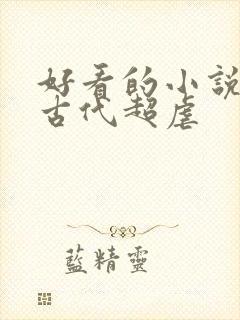 好看的小說
古代超虐
藍精靈